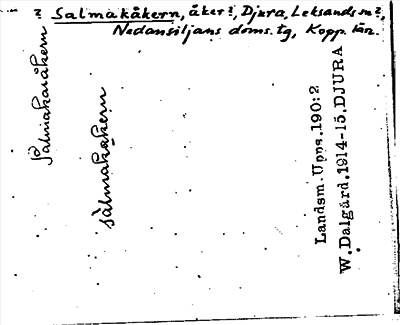 ? Salmakåkern, åker?, Djura, Leksands sn?,
Nedansiljans doms. tg, Kopp. län.
Salmakaråkern
sàlmakåkern
Landsm. Upps. 190:2
W. Dalgård. 1914-15. DJURA